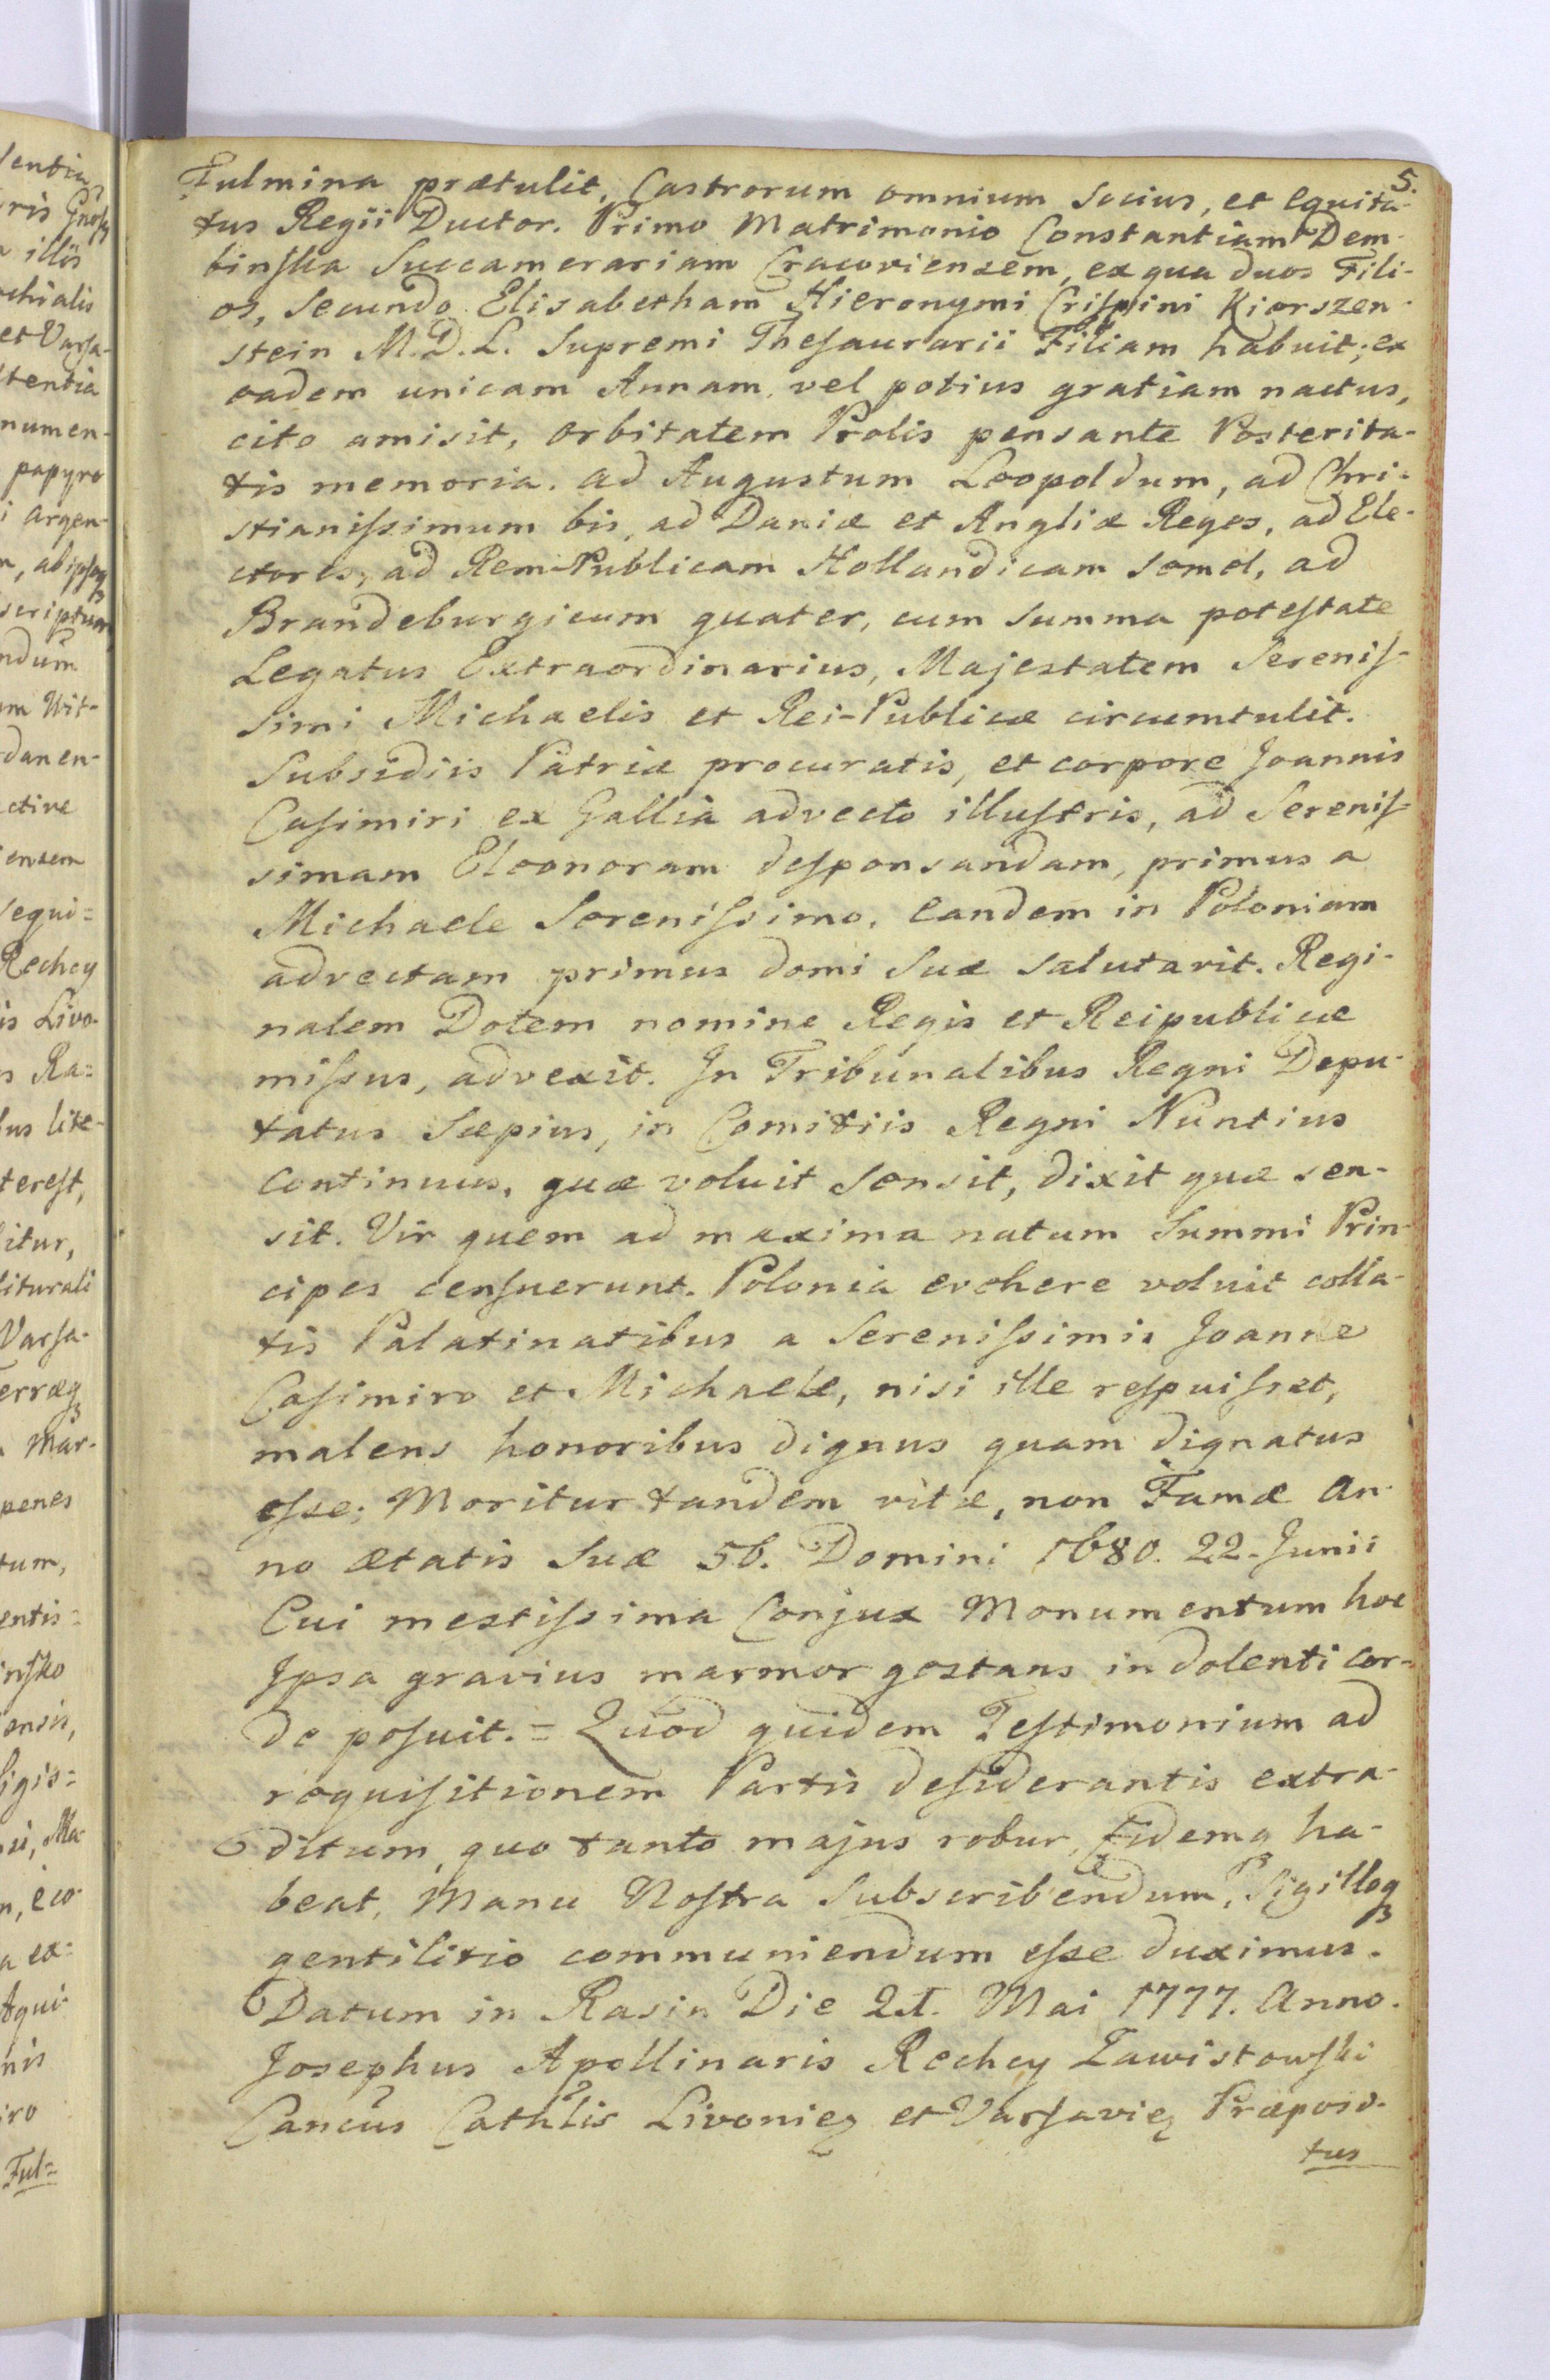 5.
Fulmina prætulit, Castrorum omnium Socius, et Equita-
tus Regii Ductor. Primo Matrimonio Constantiam Dem-
binska Succamerariam Cracoviensem, ex qua duos Fili-
os, Secundo Elisabetham Hieronymi Crispini Kierszen-
stein M. D. L. Supremi Thesaurarii Filiam habuit; ex
eadem unicam Annam, vel potius gratiam nactus,
cito amisit, Orbitatem Prolis pensante Posterita-
tis memoria. ad Augustum Leopoldum, ad Chri-
stianissimum bis, ad Daniæ et Angliæ Reges, ad Ele-
ctores, ad Rem-Publicam Hollandicam Semel, ad
Brandeburgicum quater, cum summa potestate
Legatus Extraordinarius, Majestatem Serenis-
simi Michaelis et Rei-Publicæ circumtulit.
Subsidiis Patriæ procuratis, et corpore Joannis
Casimiri ex Gallia advecto illustris, ad Serenis-
simam Eleonoram desponsandam, primus a
Michaele Serenissimo, Eandem in Poloniam
advectam primus domi Suæ salutavit. Regi-
nalem Dotem nomine Regis et Reipublicæ
missus, advexit. In Tribunalibus Regni Depu-
tatus Sæpius, in Comitiis Regni Nuntius
Continuus, quæ voluit Sensit, dixit quæ sen-
sit. Vir quem ad maxima natum Summi Prin-
cipes censuerunt. Polonia evehere voluit colla-
tis Palatinatibus a Serenissimis Joanne
Casimiro et Michaele, nisi ille respuisset,
malens honoribus dignus quam dignatus
esse; Moritur tandem vitæ, non Famæ An-
no ætatis Suæ 56. Domini 1680. 22. Junii
Cui mestissima Conjux Monumentum hoc
Ipsa gravius marmor gestans in dolenti Cor-
de posuit.= Quod quidem Testimonium ad
requisitionem Partis desiderantis extra-
ditum, quo tanto majus robur, Fidemq ha-
beat, Manu Nostra Subscribendum, Sigilloq
gentilitio communiendum esse duximus.
Datum in Rasin Die 21. Mai 1777. Anno.
Josephus Apollinaris Rechey Zawistowski
Cancus Cathlis Livonię et Varsavię Præposi-
tus